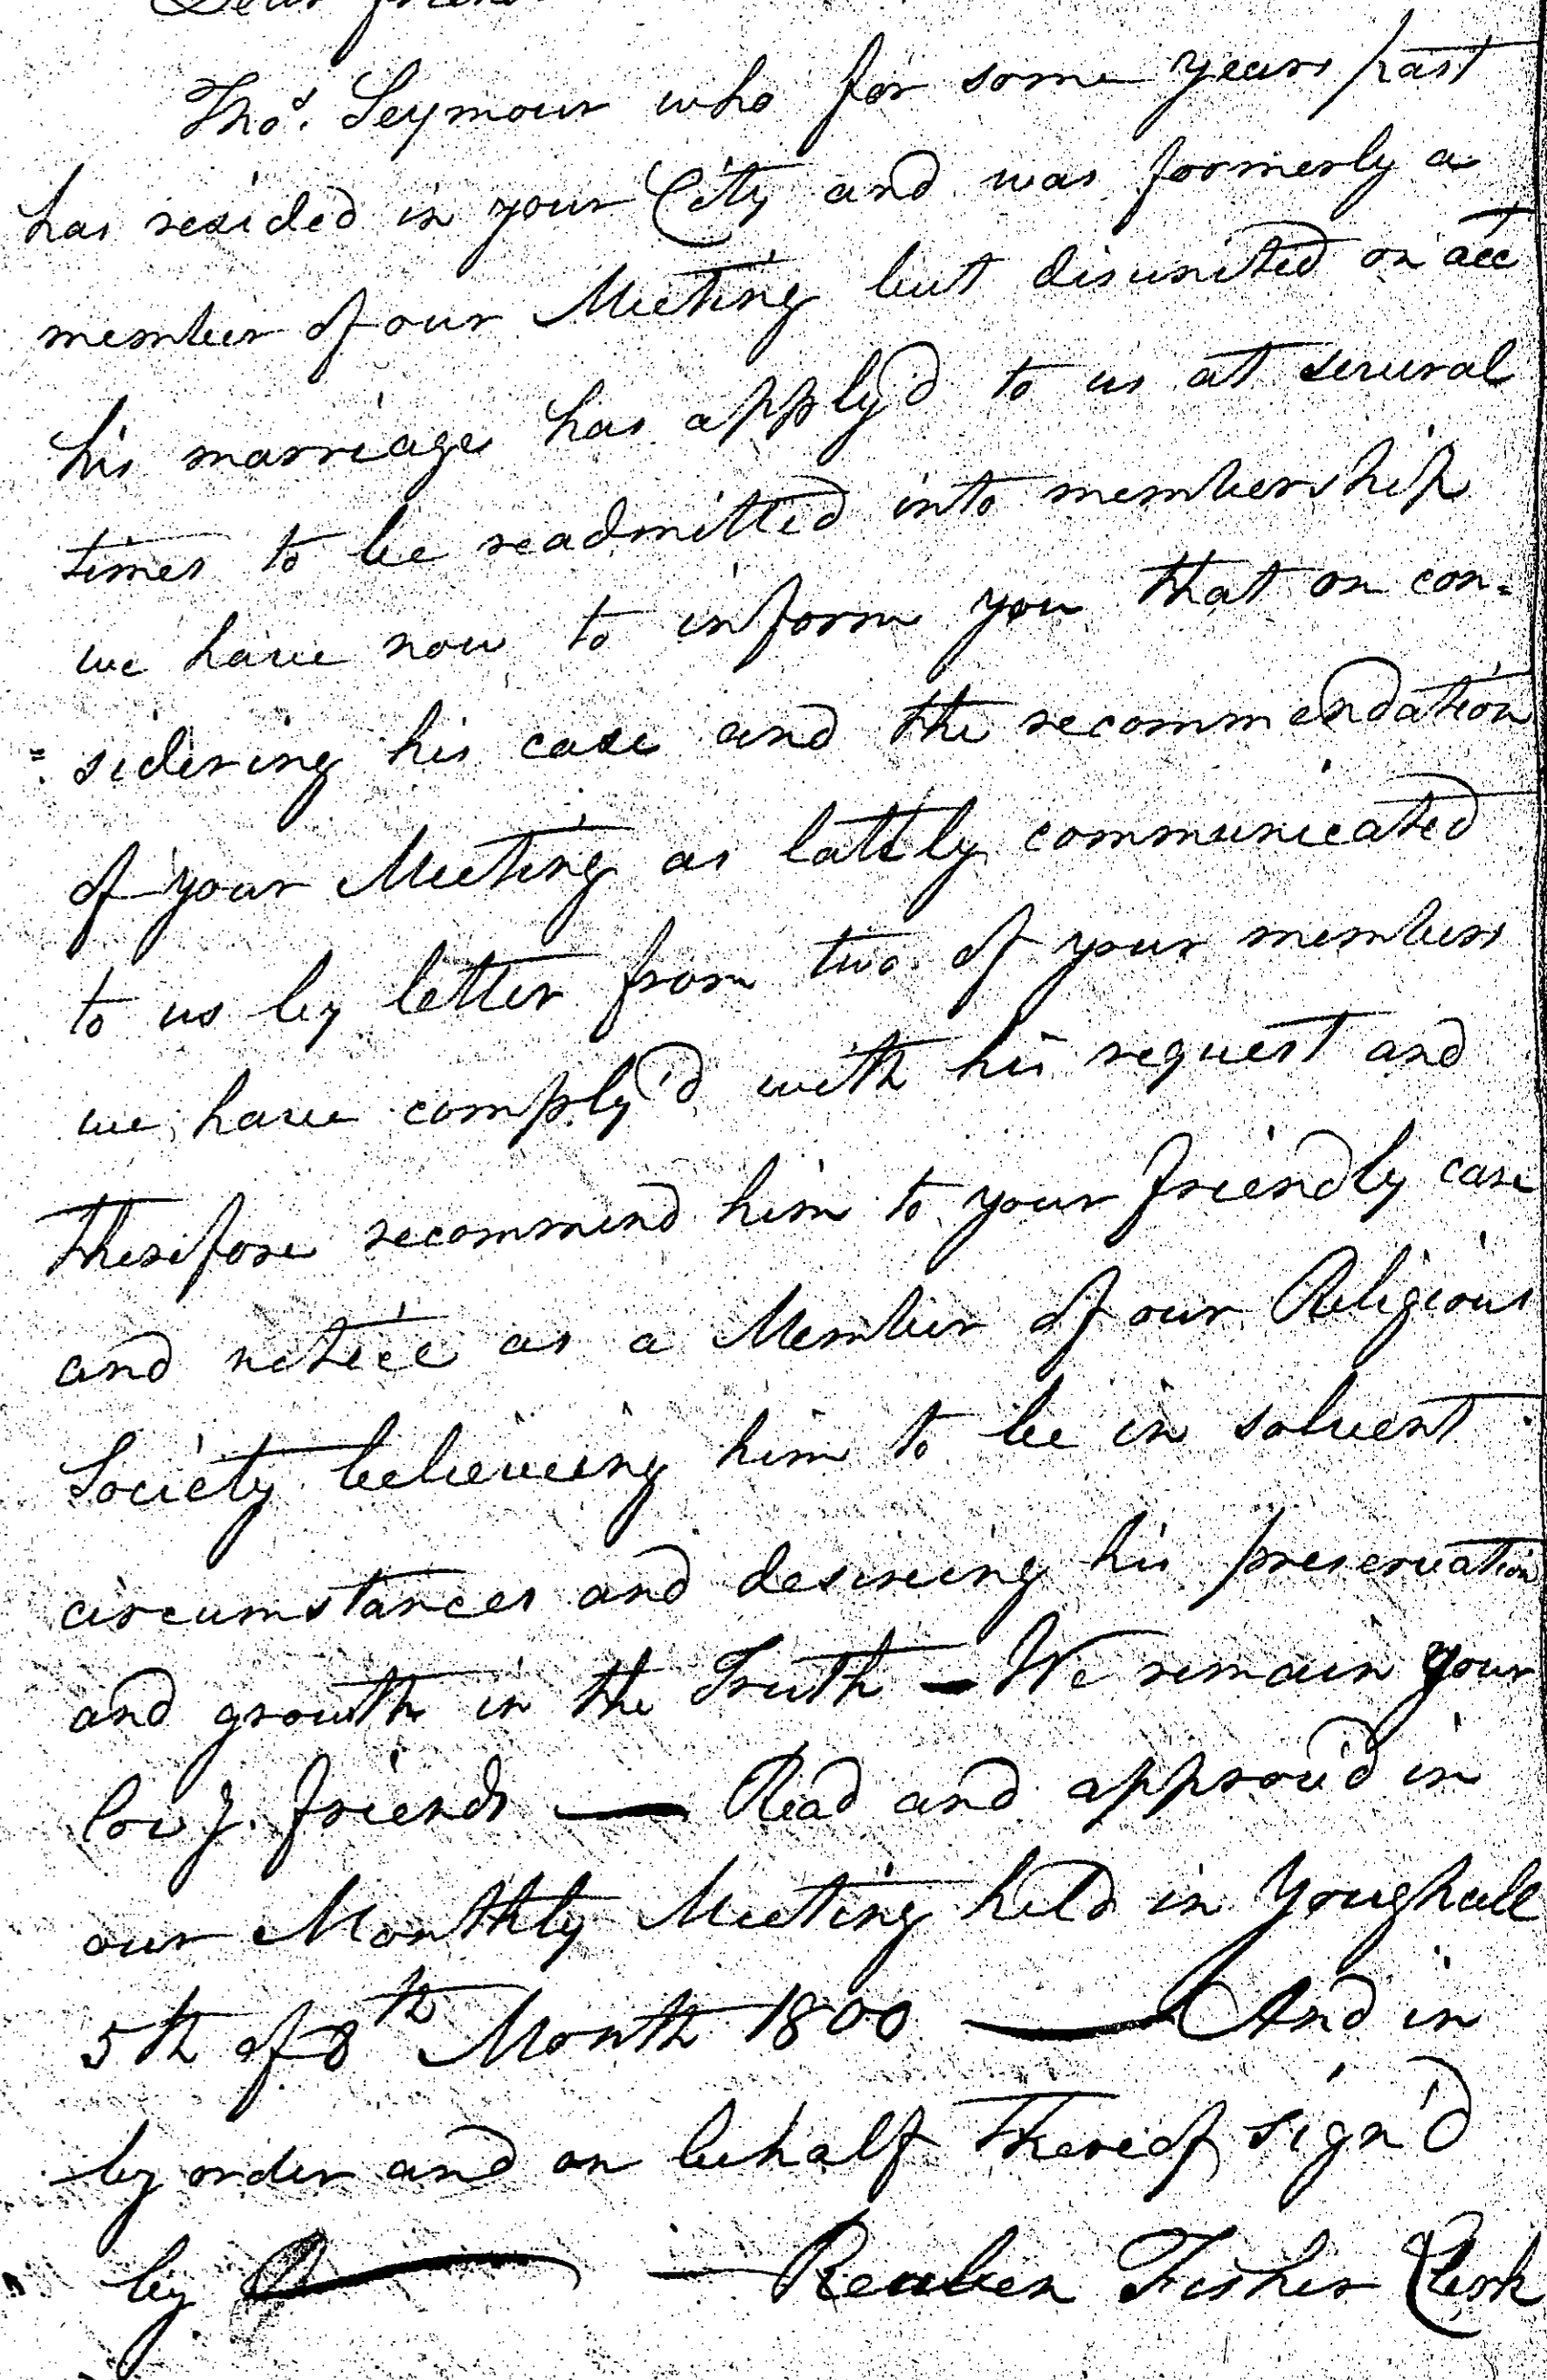 Dear friend
Thos. Seymour who for some years past
has resided in your City and was formerly a
member of our Meeting but disunited on acct
his marriage has apply'd to us at several
times to be readmitted into membership
we have now to inform you that on con=
=sidering his case and the recommendation
of your Meeting as lattly communicated
to us by letter from two of your members
we have comply'd with his request and
therefore recommend him to your friendly care
and notice as a Member of our Religious
Society believeing him to be in solvent
circumstances and desireing his preservation
and growth in the Truth — We remain your
friends — Read and approv'd in
our Monthly Meeting held in Youghall
5th of 8th Month 1800 — And in
by order and on behalf thereof sign'd
by — Reuben Fisher Clerk